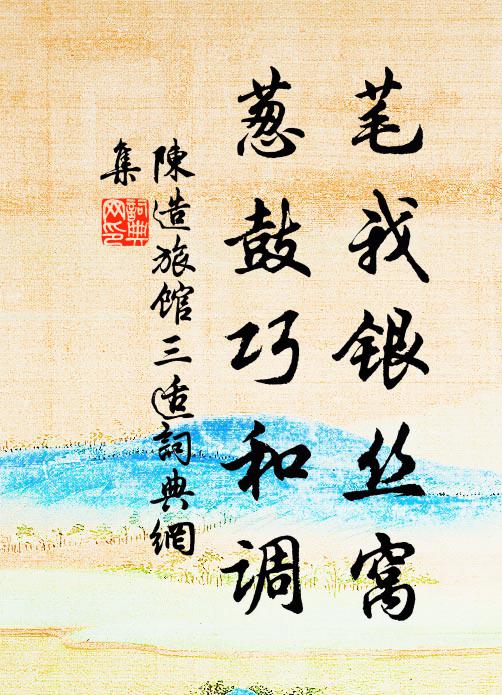 芼我银丝窝
葱鼓巧和调
陳造旅馆三适詞典網
集
詞典
网印